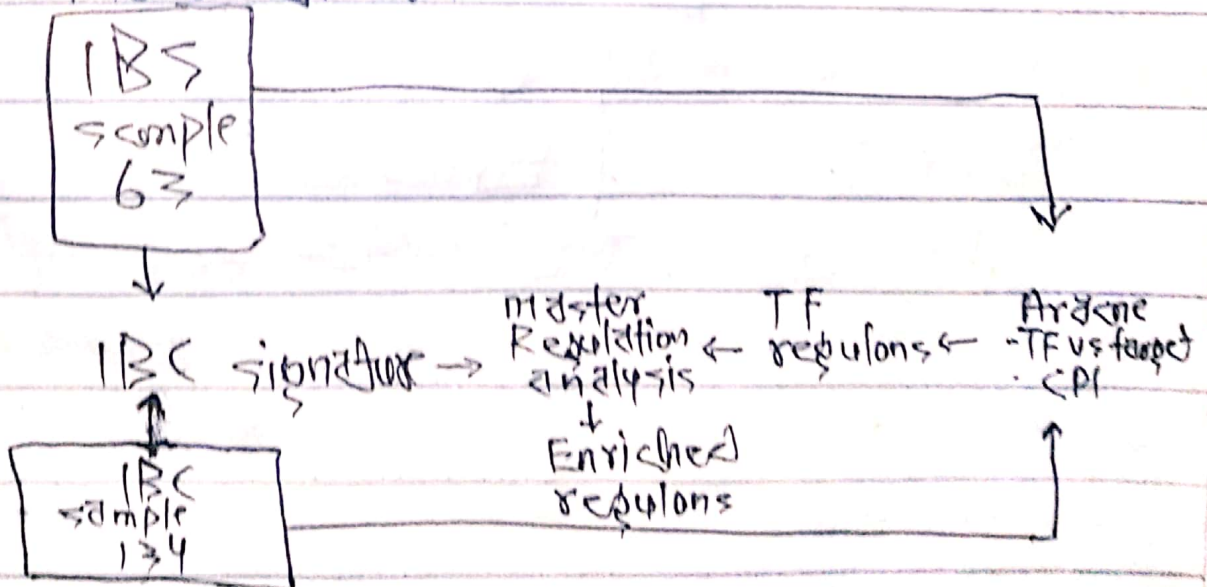 IBS
sample
63
IBC signature → Master
Regulation
analysis ← TF
regulons ← Aracne
-TF vs target
. CPI
↓
Enriched
regulons
IBC
sample
134